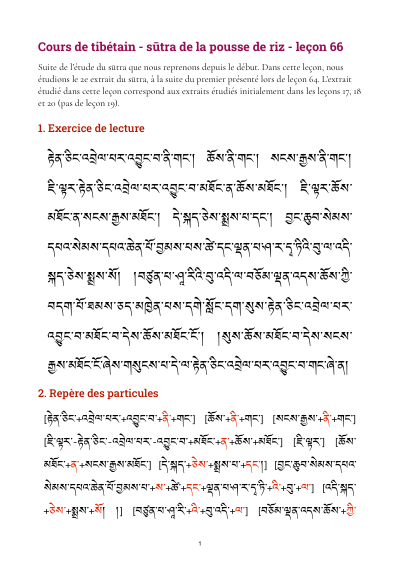 Cours de tibétain - sūtra de la pousse de riz - leçon 66
Suite de l'étude du sūtra que nous reprenons depuis le début. Dans cette leçon, nous
étudions le 2e extrait du sūtra, à la suite du premier présenté lors de leçon 64. L'extrait
étudié dans cette leçon correspond aux extraits étudiés initialement dans les leçons 17, 18
et 20 (pas de leçon 19).
1. Exercice de lecture
རྟེན་ཅིང་འབྲེལ་པར་འབྱུང་བ་ནི་གང་། ཆོས་ནི་གང་། སངས་རྒྱས་ནི་གང་།
ཇི་ལྟར་རྟེན་ཅིང་འབྲེལ་པར་འབྱུང་བ་མཐོང་ན་ཆོས་མཐོང་། ཇི་ལྟར་ཆོས་
མཐོང་ན་སངས་རྒྱས་མཐོང་། དེ་སྐད་ཅེས་སྨྲས་པ་དང་། བྱང་ཆུབ་སེམས་
དཔའ་སེམས་དཔའ་ཆེན་པོ་བྱམས་པས་ཚེ་དང་ལྡན་པ་ཤ་ར་དྭ་ཏིའི་བུ་ལ་འདི་
སྐད་ཅེས་སྨྲས་སོ། །བཙུན་པ་ཤཱ་རིའི་བུ་འདི་ལ་བཅོམ་ལྡན་འདས་ཆོས་ཀྱི་
བདག་པོ་ཐམས་ཅད་མཁྱེན་པས་དགེ་སློང་དག་སུས་རྟེན་ཅིང་འབྲེལ་པར་
འབྱུང་བ་མཐོང་བ་དེས་ཆོས་མཐོང་ངོ་། །སུས་ཆོས་མཐོང་བ་དེས་སངས་
རྒྱས་མཐོང་ངོ་ཞེས་གསུངས་པ་དེ་ལ་རྟེན་ཅིང་འབྲེལ་པར་འབྱུང་བ་གང་ཞེ་ན།
2. Repère des particules
[རྟེན་ཅིང་+འབྲེལ་པར་+འབྱུང་བ་+ནི་+གང་] [ཆོས་+ནི་+གང་] [སངས་རྒྱས་+ནི་+གང་]
[ཇི་ལྟར་-རྟེན་ཅིང་-འབྲེལ་པར་-འབྱུང་བ་+མཐོང་+ན་+ཆོས་+མཐོང་] [ཇི་ལྟར་] [ཆོས་
མཐོང་+ན་+སངས་རྒྱས་མཐོང་] [དེ་སྐད་+ཅེས་+སྨྲས་པ་+དང་།] [བྱང་ཆུབ་སེམས་དཔའ་
སེམས་དཔའ་ཆེན་པོ་བྱམས་པ་+ས་+ཚེ་+དང་+ལྡན་པ་ཤ་ར་དྭ་ཏི་+འི་+བུ་+ལ་] [འདི་སྐད་
+ཅེས་+སྨྲས་+སོ། །] [བཙུན་པ་ཤཱ་རི་+འི་+བུ་འདི་+ལ་] [བཅོམ་ལྡན་འདས་ཆོས་+ཀྱི་
1